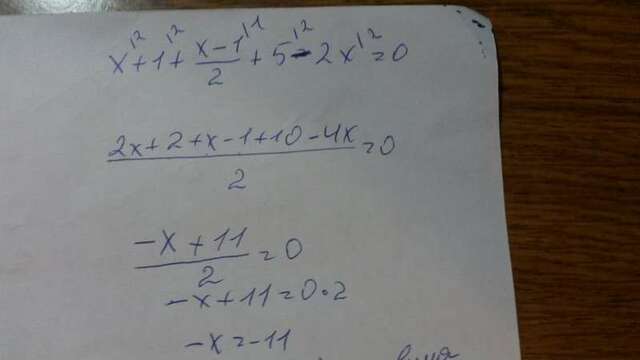 x|2 + 1|2 + x-1|1 / 2 + 5|2 - 2x|2 = 0
2x+2+x-1+10-4x / 2 = 0
-x+11 / 2 = 0
-x+11=0·2
-x=-11